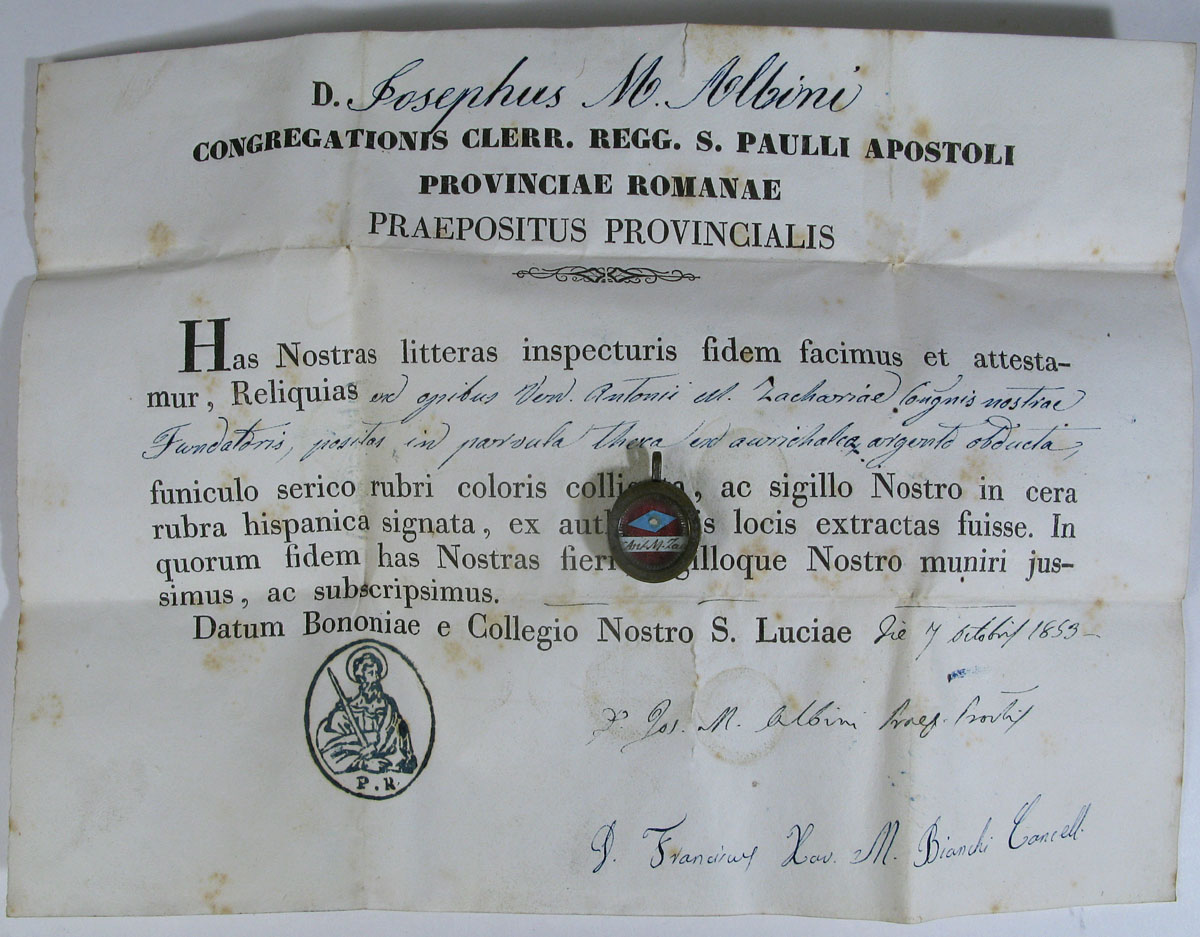 D. Josephus M. Albini
CONGREGATIONIS CLERR. REGG. S. PAULLI APOSTOLI
PROVINCIAE ROMANAE
PRAEPOSITUS PROVINCIALIS
Has Nostras litteras inspecturis fidem facimus et attesta-
mur, Reliquias ex opibus Ven. Antonii M. Zachariae Congnis nostrae
Fundatoris, positas in parvula theca ex aurichalco argento obducta,
funiculo serico rubri coloris coll , ac sigillo Nostro in cera
rubra hispanica signata, ex auth s locis extractas fuisse. In
quorum fidem has Nostras fieri gilloque Nostro muniri jus-
simus, ac subscripsimus.
Ant. M. Za
Datum Bononiae e Collegio Nostro S. Luciae die 7 octobris 1853
P. R.
D. Jos. M. Albini Praep. Provlis
D. Franciscus Xav. M. Bianchi Cancell.